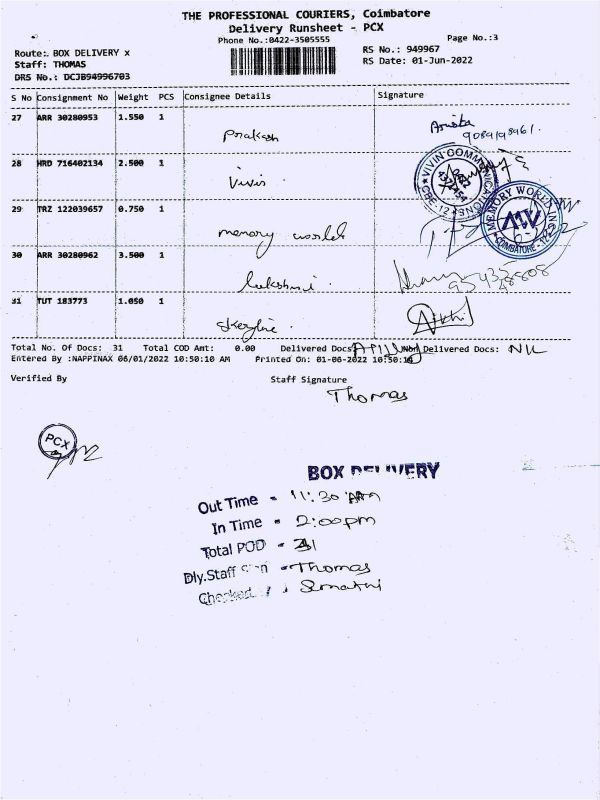 THE PROFESSIONAL COURIERS, Coimbatore
Delivery Runsheet - PCX
Phone No.:0422-3505555
Page No.:3
Route: BOX DELIVERY x
RS No.: 949967
Staff: THOMAS
RS Date: 01-Jun-2022
DRS No.: DCJB94996703
S No Consignment No Weight PCS Consignee Details Signature
27 ARR 30280953 1.550 1
Prakash
28 HRD 716402134 2.500 1
Vivin
VIVIN COMMUNICATIONS
CBE-12
29 TRZ 122039657 0.750 1
memory world
MEMORY WORLD INC
MW
COIMBATORE - 12
30 ARR 30280962 3.500 1
lakshmi
31 TUT 183773 1.050 1
skyline
Total No. Of Docs: 31 Total COD Amt: 0.00 Delivered Docs: Non Delivered Docs: NIL
Entered By :NAPPINAX 06/01/2022 10:50:10 AM Printed On: 01-06-2022 10:50:16
Verified By Staff Signature
Thomas
PCX
BOX DELIVERY
Out Time - 11:30 Am
In Time - 2:00pm
Total POD - 31
Dly.Staff Sign - Thomas
Checked